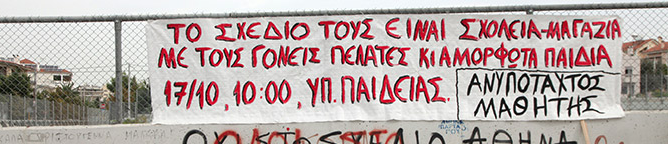 ΤΟ ΣΧΕΔΙΟ ΤΟΥΣ ΕΙΝΑΙ ΣΧΟΛΕΙΑ-ΜΑΓΑΖΙΑ
ΜΕ ΤΟΥΣ ΓΟΝΕΙΣ ΠΕΛΑΤΕΣ ΚΙ ΑΜΟΡΦΩΤΑ ΠΑΙΔΙΑ
17/10, 10:00, ΥΠ. ΠΑΙΔΕΙΑΣ.
ΑΝΥΠΟΤΑΧΤΟΣ
ΜΑΘΗΤΗΣ
ΑΘΗΝΑ